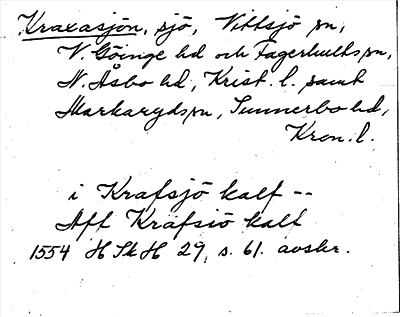 Kraxasjön, sjö, Vittsjö sn,
V. Göinge hd och Fagerhults sn,
N. Åsbo hd, Krist. l. samt
Markaryds sn, Sunnerbo hd,
Kron. l.
i Krafsjö kalf --
Aff Kräfsiö kalf
1554 H Sk H 29, s. 61. avskr.